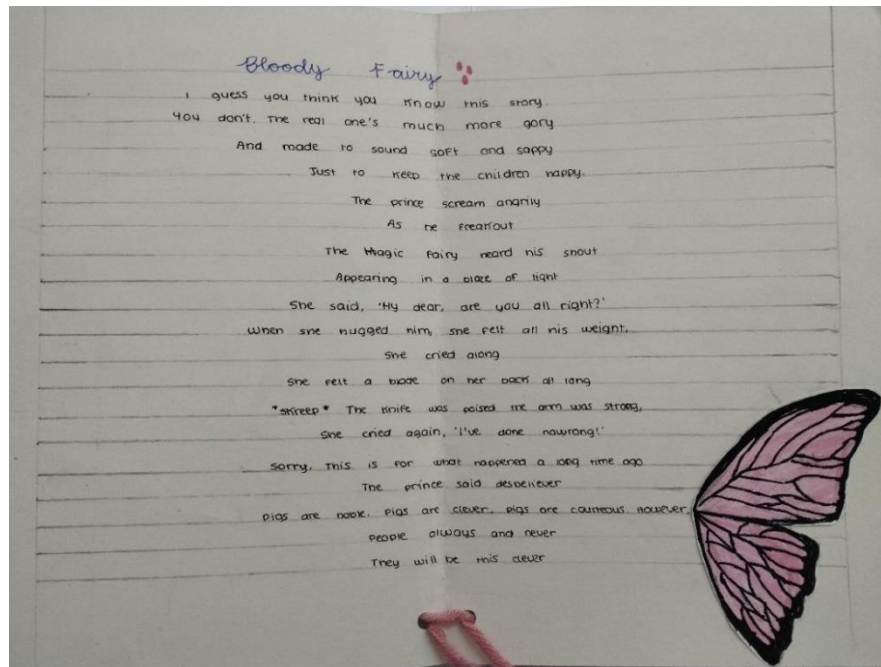 Bloody Fairy
I guess you think you know this story.
You don't. The real one's much more gory
And made to sound soft and sappy
Just to keep the children happy.
The prince scream angrily
As he freakout
The Magic Fairy heard his shout
Appearing in a blaze of light
She said, 'My dear, are you all right?'
When she hugged him, she felt all his weight.
She cried along
She felt a blade on her back all long
*skreep* The knife was poised the arm was strong,
She cried again, 'I've done nawrong!'
Sorry, this is for what happened a long time ago
The prince said desbeliever
pigs are noble. pigs are clever, pigs are courteous. However,
people always and never
They will be this clever